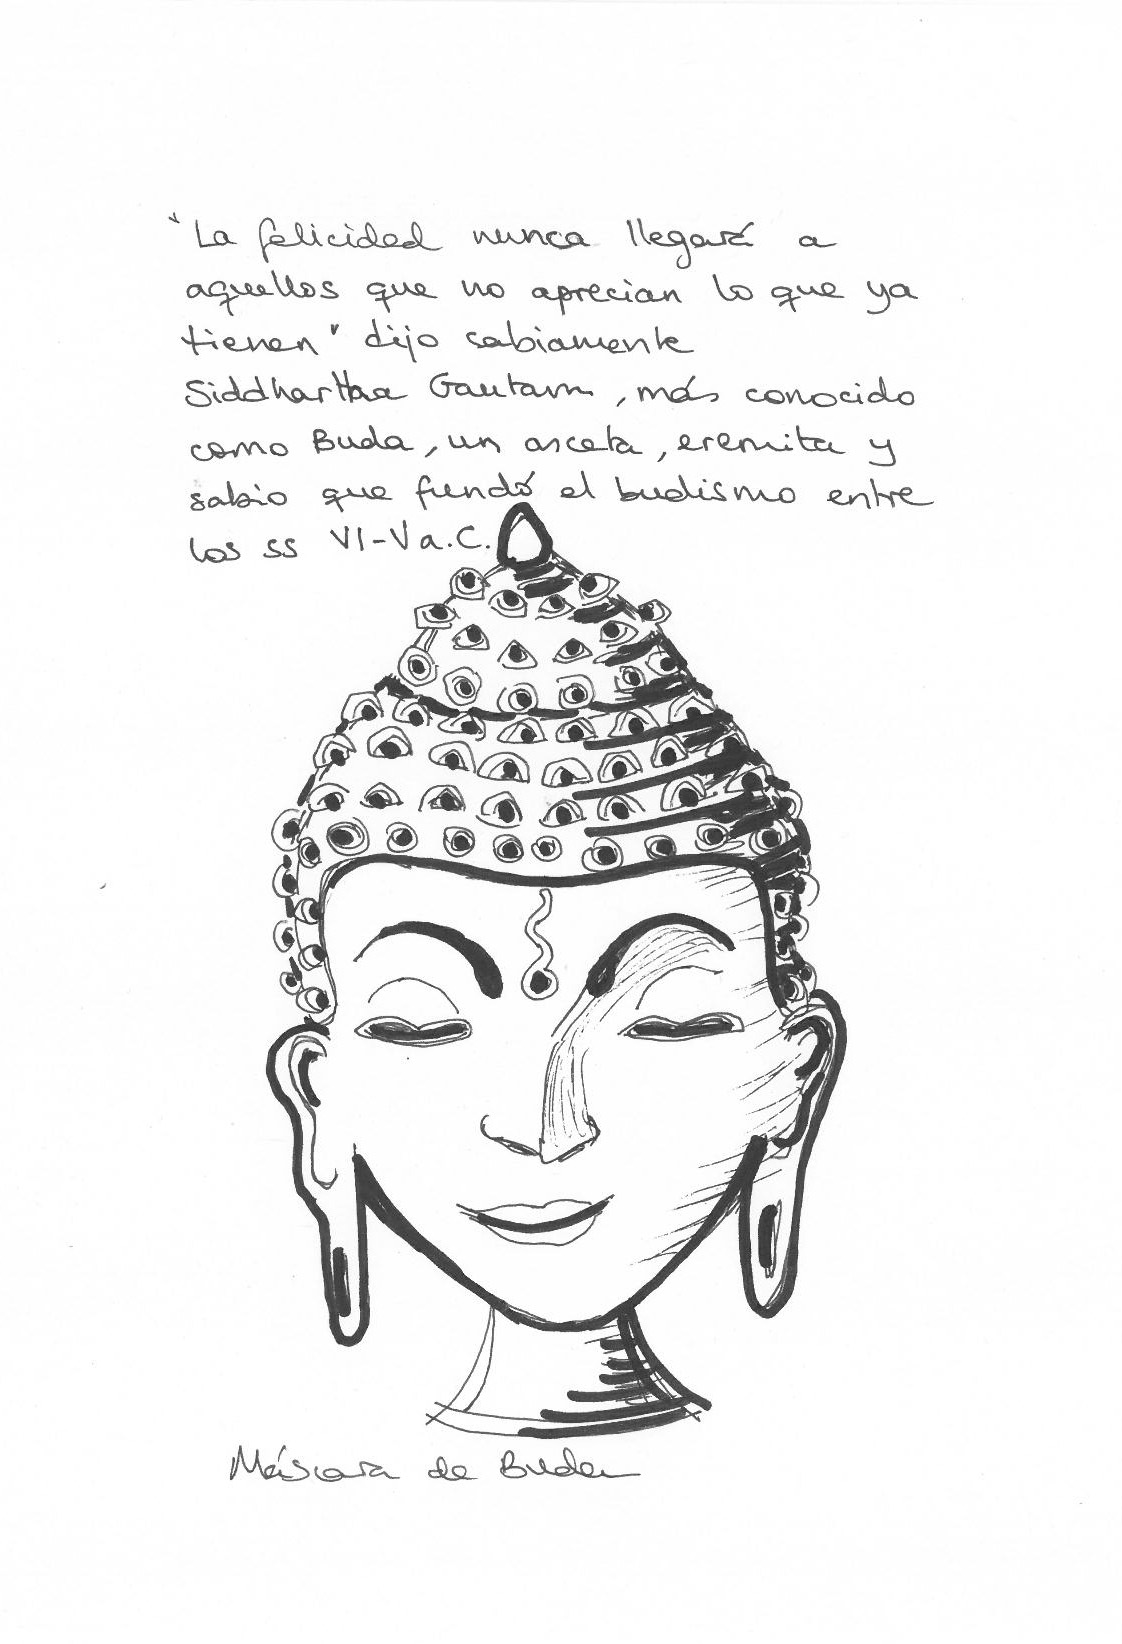 "La felicidad nunca llegará a
aquellos que no aprecian lo que ya
tienen" dijo sabiamente
Siddhartha Gautam, más conocido
como Buda, un asceta, eremita y
sabio que fundó el budismo entre
los ss VI-V a.C.
Máscara de Buda